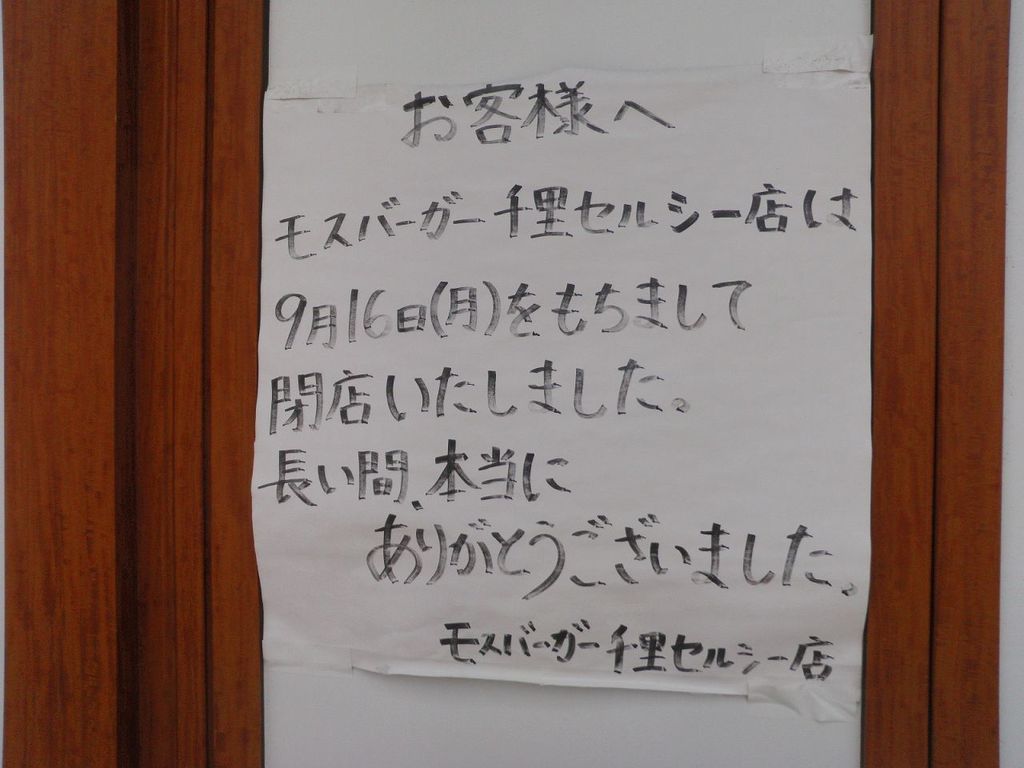 お客様へ
モスバーガー千里セルシー店は
9月16日(月)をもちまして
閉店いたしました。
長い間、本当に
ありがとうございました。
モスバーガー千里セルシー店